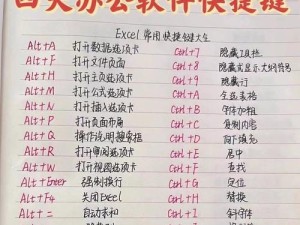 四大办公软件快捷键
Excel 常用快捷键大全
Alt+A 打开数据选项卡 Ctrl+7 隐藏工具栏
Alt+F 打开文件页面 Ctrl+8 隐藏或显示大纲符号
Alt+H 打开主页选项卡 Ctrl+9 隐藏行
Alt+M 打开公式选项卡 Ctrl+A 全选表格
Alt+N 打开插入选项卡 Ctrl+B 字体加粗
Alt+P 打开页面布局 Ctrl+C 复制内容
Alt+Q 操作说明搜索框 Ctrl+D 向下填充
Alt+R 打开审阅选项卡 Ctrl+E 居中
Alt+W 打开视图选项卡 Ctrl+F 查找
Alt+Enter 强制换行 Ctrl+G 定位
Alt+F4 关闭Excel Ctrl+H 替换
Alt+= 自动求和 Ctrl+I 斜字体